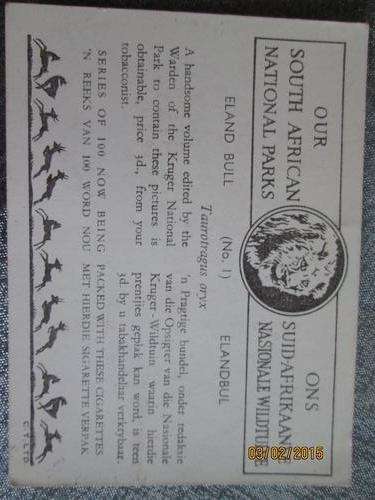 OUR
SOUTH AFRICAN
NATIONAL PARKS
ONS
SUID-AFRIKAANSE
NASIONALE WILDTUINE
ELAND BULL (No. 1) ELANDBUL
Taurotragus oryx
A handsome volume edited by the
Warden of the Kruger National
Park to contain these pictures is
obtainable, price 3d., from your
tobacconist.
'n Pragtige bundel, onder redaksie
van die Opsigter van die Nasionale
Kruger-Wildtuin waarin hierdie
prentjies geplak kan word, is teen
3d. by u tabakhandelaar verkrybaar.
SERIES OF 100 NOW BEING PACKED WITH THESE CIGARETTES
'N REEKS VAN 100 WORD NOU MET HIERDIE SIGARETTE VERPAK
C.T. LTD
03/02/2015